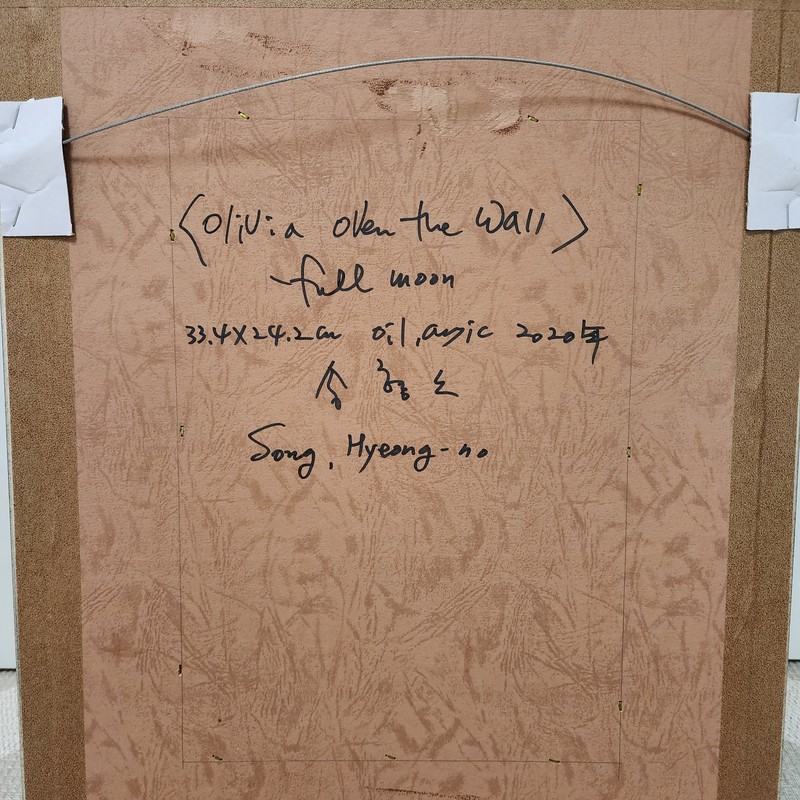 <Olivia over the Wall>
-full moon
33.4X24.2cm oil, acrylic 2020年
송형노
Song, Hyeong-no